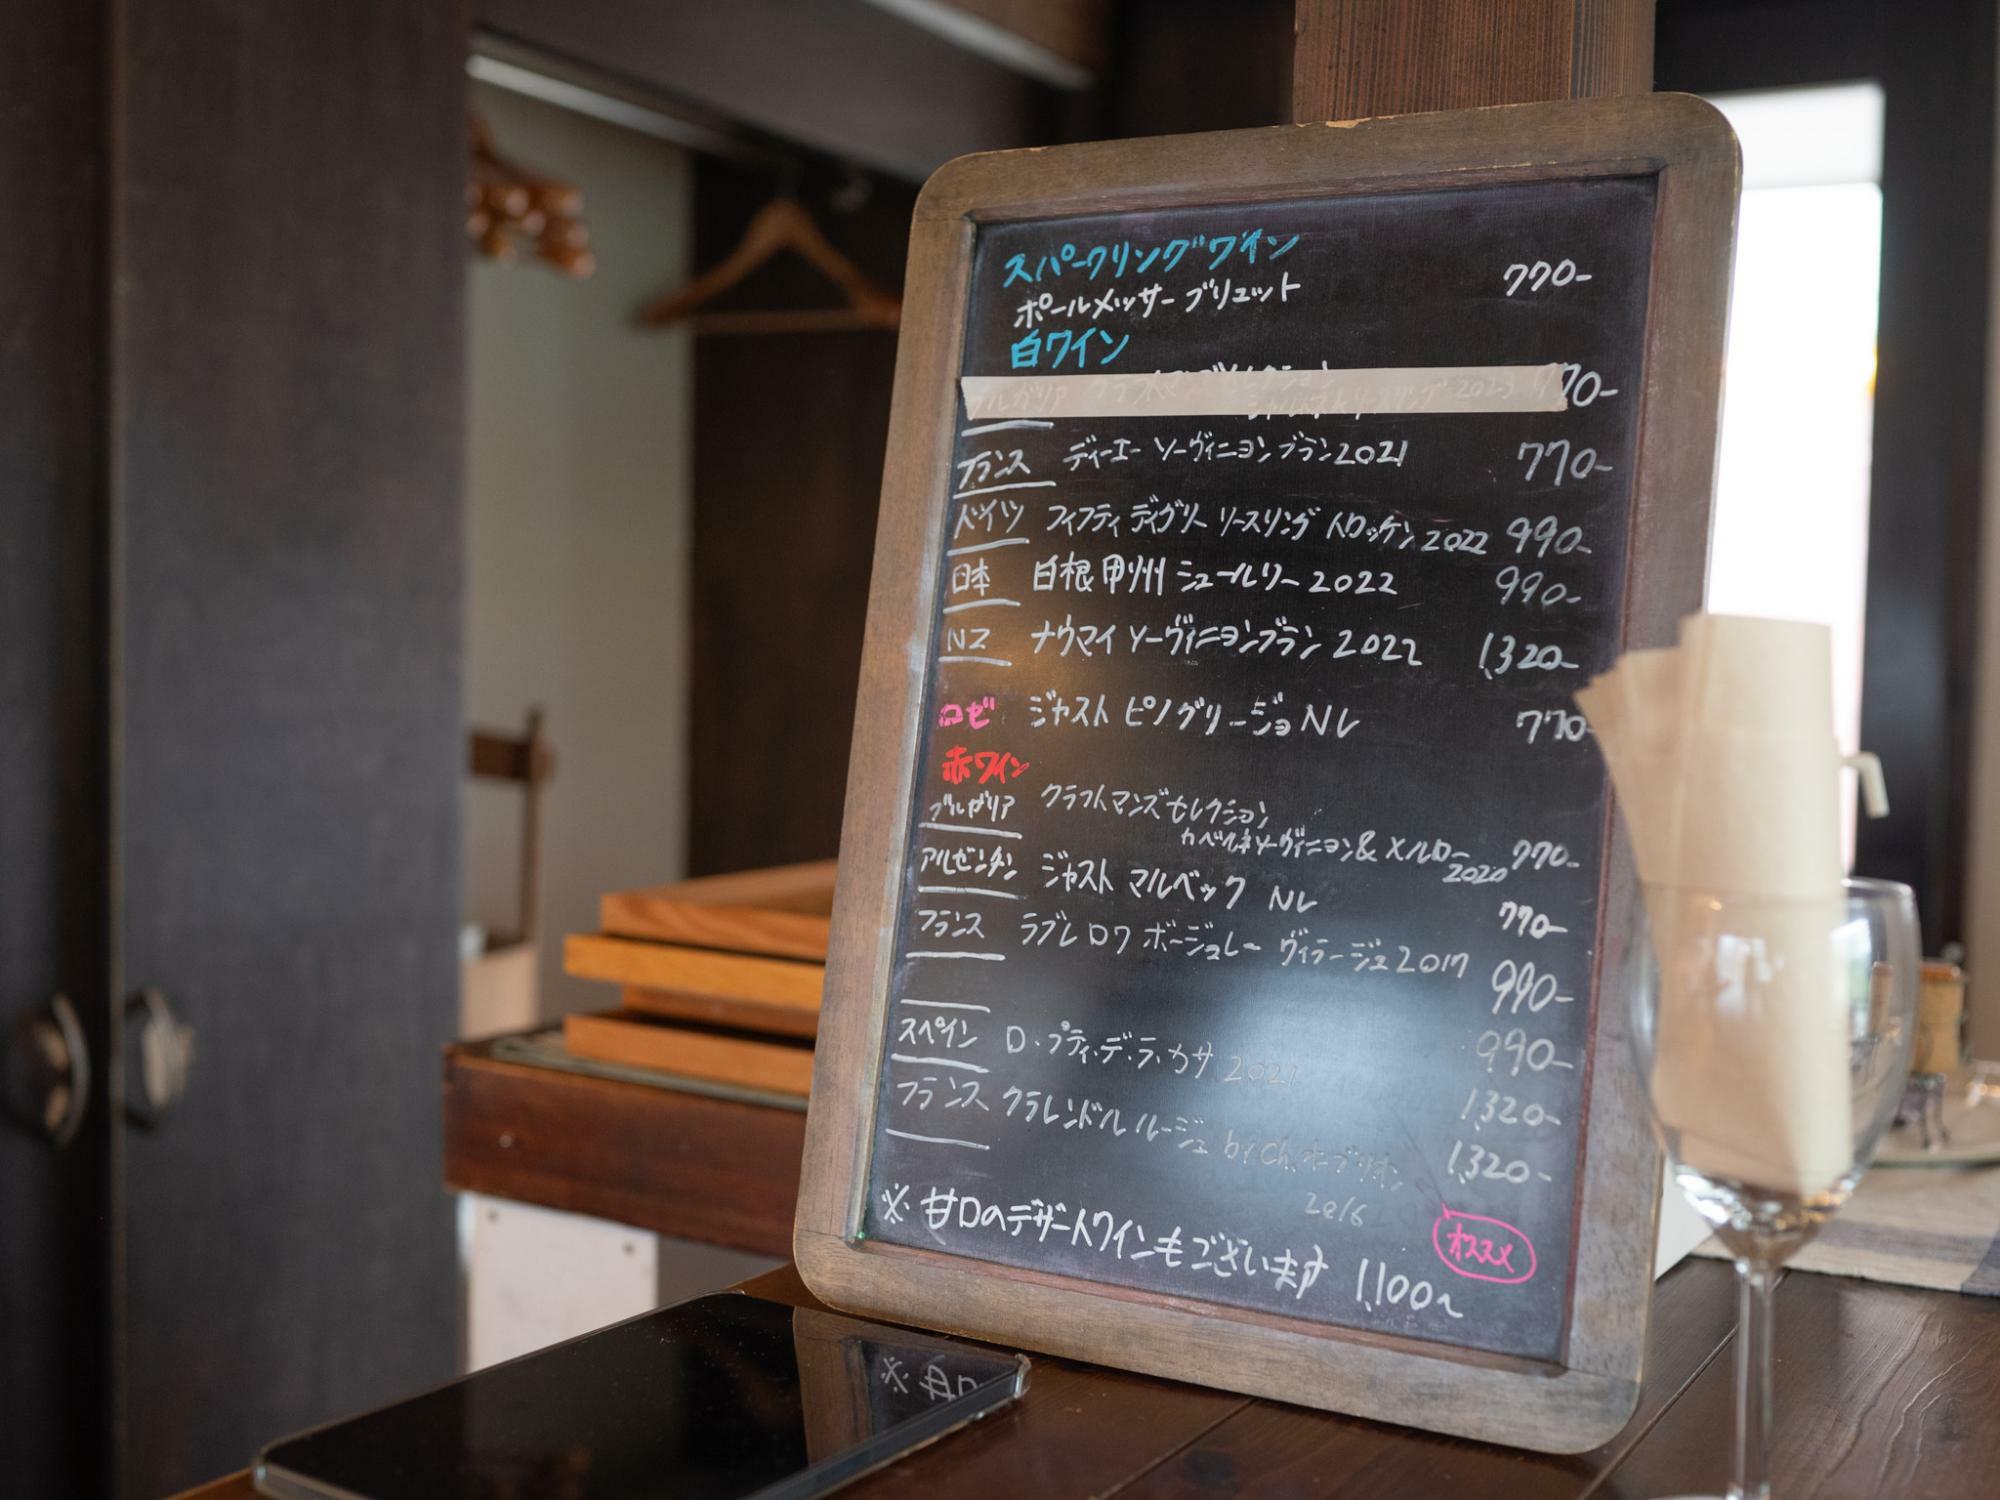 スパークリングワイン
ポールメッサー ブリュット 770-
白ワイン
ブルガリア クラフトマンズセレクション 770-
シャルドネ&リースリング 2023
フランス ディーエー ソーヴィニヨンブラン2021 770-
ドイツ フィフティ ディグリー リースリング トロッケン 2022 990-
日本 白根 甲州 シュールリー 2022 990-
NZ ナウマイ ソーヴィニヨンブラン 2022 1,320-
ロゼ ジャスト ピノ グリージョ NV 770-
赤ワイン
ブルガリア クラフトマンズセレクション
カベルネソーヴィニヨン&メルロー 2020 770-
アルゼンチン ジャスト マルベック NV 770-
フランス ラブレ ロワ ボージョレー ヴィラージュ 2017 990-
990-
スペイン ロ・プティ・デ・ラ・カサ 2021 1,320-
フランス クラレンドル ルージュ by Ch.オーブリオン 1,320-
2016
※ 甘口のデザートワインもございます 1,100~
オススメ
※ 甘口